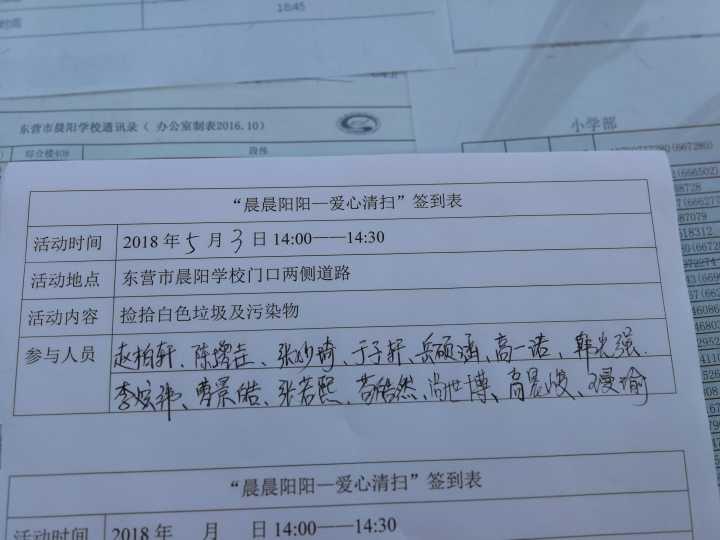 18:45
时间
东营市晨阳学校通讯录（ 办公室制表2016.10）
小学部
综合楼409
段炼
“晨晨阳阳—爱心清扫”签到表
活动时间 2018 年 5 月 3 日 14:00——14:30
活动地点 东营市晨阳学校门口两侧道路
活动内容 捡拾白色垃圾及污染物
参与人员 赵柏轩、陈、张妙琦、于子轩、岳硕涵、高一诺、韩光强
李、曹景皓、张若熙、苟浩然、尚世博、肖晨峻、瑜
“晨晨阳阳—爱心清扫”签到表
活动时间 2018 年 月 日 14:00——14:30